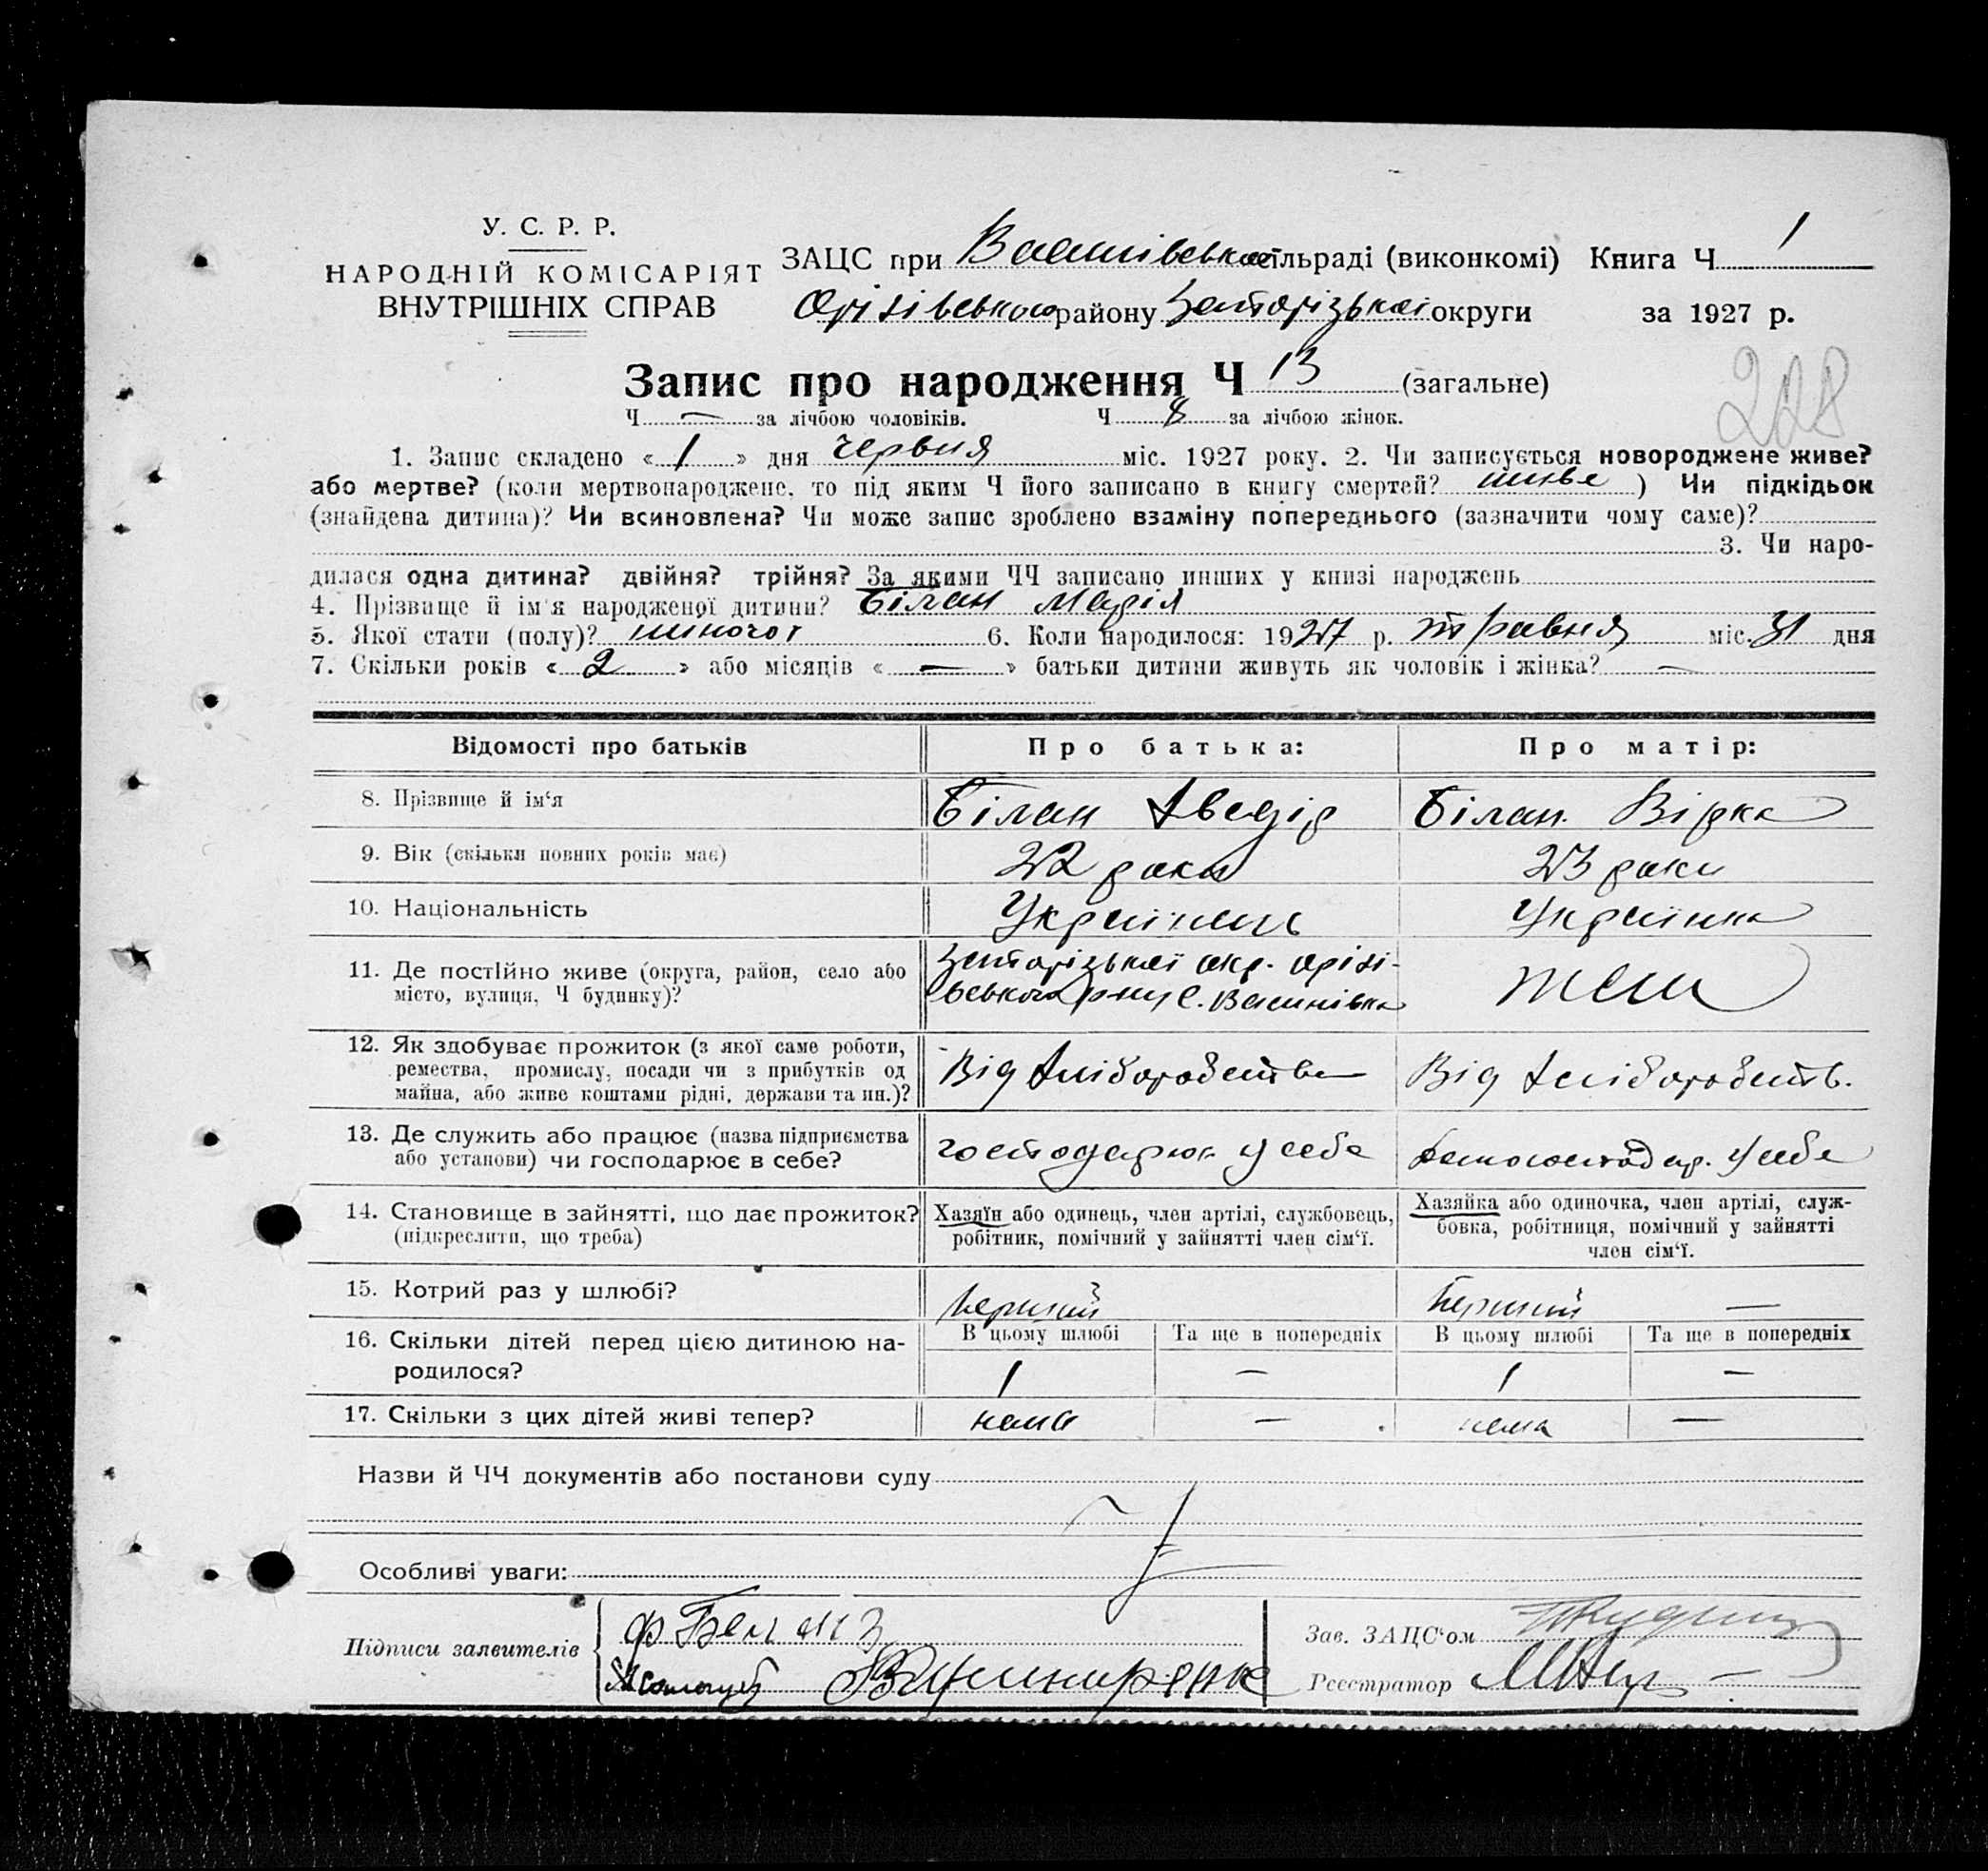 У. С. Р. Р.
НАРОДНІЙ КОМІСАРІЯТ
ВНУТРІШНІХ СПРАВ
ЗАЦС при сільраді (виконкомі) Книга Ч 1
Оріхівського району Запорізької округи за 1927 р.
Запис про народження Ч 13 (загальне)
228
Ч — за лічбою чоловіків. Ч 8 за лічбою жінок.
1. Запис складено « 1 » дня червня міс. 1927 року. 2. Чи записується новороджене живе?
або мертве? (коли мертвонароджене, то під яким Ч його записано в книгу смертей? живе ) Чи підкідьок
(знайдена дитина)? Чи всиновлена? Чи може запис зроблено взаміну попереднього (зазначити чому саме)?
3. Чи наро-
дилася одна дитина? двійня? трійня? За якими ЧЧ записано инших у книзі народжень
4. Прізвище й ім'я народженої дитини? Білан Марія
5. Якої стати (полу)? жіночої 6. Коли народилося: 1927 р. травня міс. 31 дня
7. Скільки років « 2 » або місяців « — » батьки дитини живуть як чоловік і жінка? —
Відомості про батьків Про батька: Про матір:
8. Прізвище й ім'я Білан Хведір Білан Вірка
9. Вік (скільки повних років має) 22 роки 23 роки
10. Національність Українець Українка
11. Де постійно живе (округа, район, село або
місто, вулиця, Ч будинку)?
Запорізької окр. Оріхі-
вського р-ну с.
12. Як здобуває прожиток (з якої саме роботи,
ремества, промислу, посади чи з прибутків од
майна, або живе коштами рідні, держави та ин.)?
Від хліборобства Від хліборобств.
13. Де служить або працює (назва підприємства
або установи) чи господарює в себе?
господарює у себе у себе
14. Становище в зайнятті, що дає прожиток?
(підкреслити, що треба)
Хазяїн або одинець, член артілі, службовець,
робітник, помічний у зайнятті член сім'ї.
Хазяйка або одиночка, член артілі, служ-
бовка, робітниця, помічний у зайнятті
член сім'ї.
15. Котрий раз у шлюбі? Перший Перший —
16. Скільки дітей перед цією дитиною на-
родилося?
В цьому шлюбі Та ще в попередніх В цьому шлюбі Та ще в попередніх
1 — 1 —
17. Скільки з цих дітей живі тепер? нема — нема —
Назви й ЧЧ документів або постанови суду
Особливі уваги:
Підписи заявителів
Зав. ЗАЦС'ом
Реєстратор